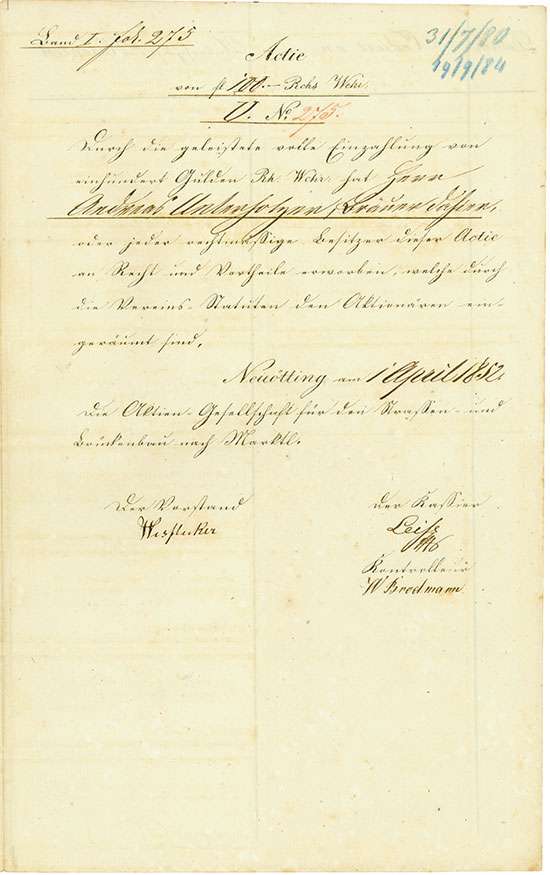 Band I. fol. 275
31/7/80
19/9/84
Actie
von fl 100.– Rchs Wehr.
V. No. 275.
Durch die geleistete volle Einzahlung von
einhundert Gulden Rh. Wehr. hat Herr
Andreas Unterholzner, Bräuer
oder jeder rechtmässige Besitzer dieser Actie
an Recht und Vortheile erworben, welche durch
die Vereins-Statuten den Aktionären ein-
geräumt sind.
Neuötting am 1 April 1852.
Die Aktien-Gesellschaft für den Strassen- und
Brückenbau nach Marktl.
Der Vorstand
der Kassier
Kontrolleur
W Brodmann